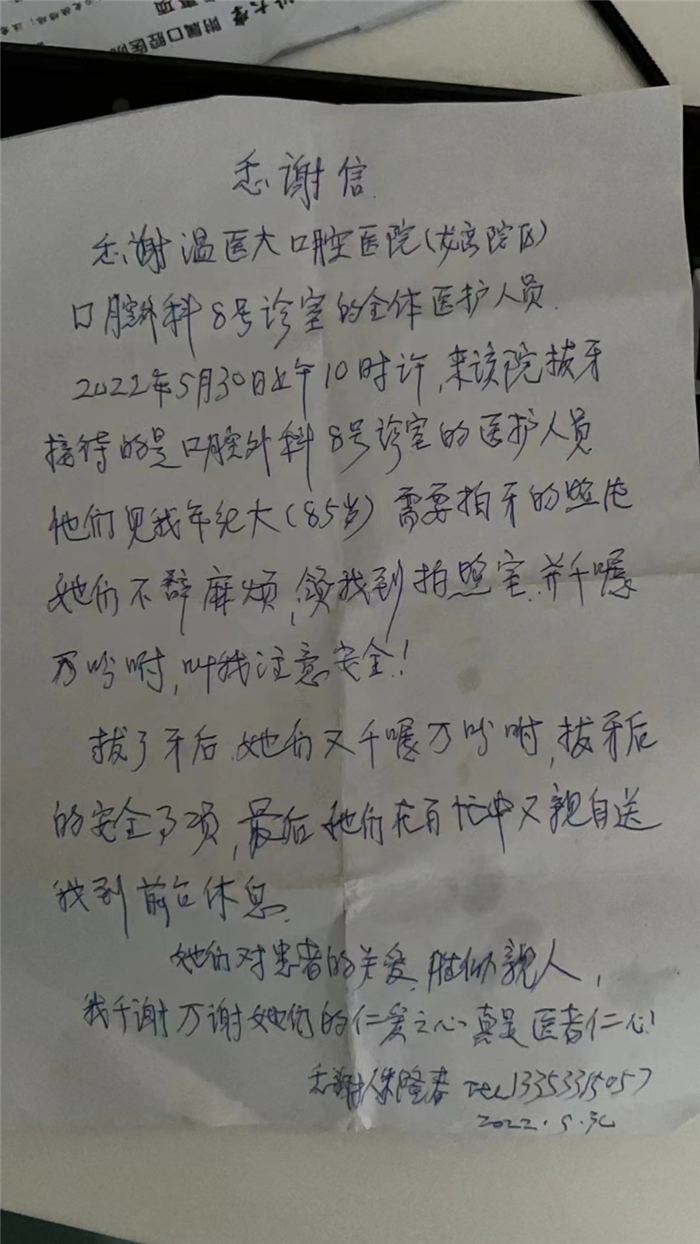 附属口腔医院
感谢信
感谢温医大口腔医院(龙湾院区)
口腔外科8号诊室的全体医护人员.
2022年5月30日上午10时许,来该院拔牙
接待的是口腔外科8号诊室的医护人员
他们见我年纪大(85岁)需要拍牙的照片
她们不辞麻烦,领我到拍照室.并千嘱
万吩咐,叫我注意安全!
拔了牙后.她们又千嘱万吩咐,拔牙后
的安全事项,最后她们在百忙中又亲自送
我到前台休息.
她们对患者的关爱.胜似亲人,
我千谢万谢她们的仁爱之心真是医者仁心!
感谢人隆春 TEL13353315057
2022.5.30